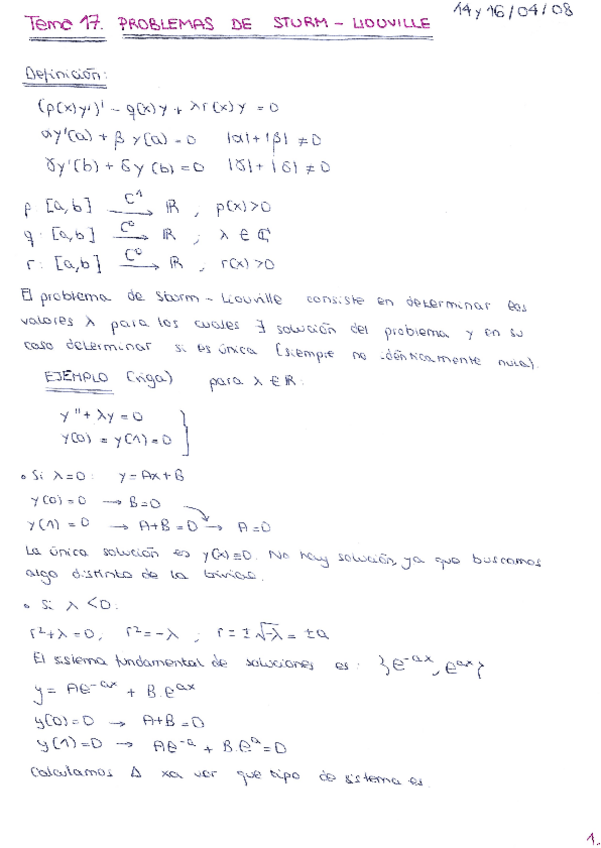 Tema 17. PROBLEMAS DE STURM-LIOUVILLE 14 y 16/04/08
Definición:
(p(x)y')' - q(x)y + λr(x)y = 0
αy'(a) + βy(a) = 0 |α|+|β| ≠ 0
γy'(b) + δy(b) = 0 |γ|+|δ| ≠ 0
p [a,b] C¹→ ℝ , p(x)>0
q: [a,b] C⁰→ ℝ ; λ ∈ ℂ
r: [a,b] C⁰→ ℝ , r(x)>0
El problema de Sturm-Liouville consiste en determinar los
valores λ para los cuales ∃ solución del problema y en su
caso determinar si es única (siempre no idénticamente nula).
EJEMPLO (viga) para λ ∈ ℝ:
y'' + λy = 0
y(0) = y(1) = 0 }
• Si λ=0: y=Ax+B
y(0)=0 → B=0
y(1)=0 → A+B=0 → A=0
La única solución es y(x)≡0. No hay solución, ya que buscamos
algo distinto de la trivial.
• Si λ<0:
r²+λ=0, r²=-λ ; r=±√-λ = ±a
El sistema fundamental de soluciones es: {e^-ax, e^ax}
y = Ae^-ax + B.e^ax
y(0)=0 → A+B=0
y(1)=0 → Ae^-a + B.e^a=0
Calculamos Δ xa ver que tipo de sistema es.
1.